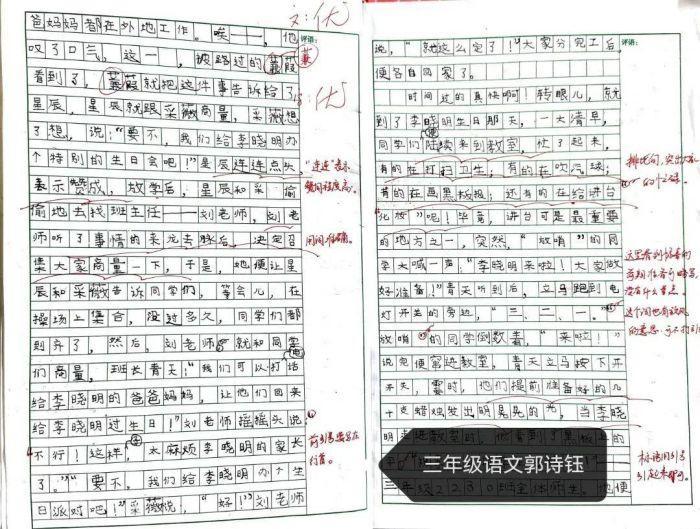 文:优
爸妈妈都在外地工作。唉——,他
评语:
叹了口气。这一,被路过的蒹葭
蒹
看到了,蒹葭就把这件事告诉给了
书:优
星辰,星辰就跟采薇商量,采薇想
了想,说:“要不,我们给李晓明办
个特别的生日会吧!”星辰连连点头,
“连连”表示
表示赞成,放学后,星辰和采偷
赞同程度高。
偷地去找班主任——刘老师,刘老
师听了事情的来龙去脉后,决定召
用词准确。
集大家商量一下,于是,她便让星
辰和采薇告诉同学们,等会儿,在
操场上集合,没过多久,同学们都
到齐了,然后,刘老师就和同学
们商量,班长青天:“我们可以打话
电
给李晓明的爸爸妈妈,让他们来
给李晓明过生日!”刘老师摇摇头说
不行!这样,太麻烦李晓明的家长
前引号要写在
行首。
了。”“要不,我们给李晓明办个生
日派对吧!”采薇说,“好!”刘老师
说,“就这么定了!”大家分完工后,
评语:
便各自回家了。
时间过的真快啊!转眼儿,就
到了李晓明生日那天,一大清早,
同学们陆续来到教室,忙了起来,
有的在打扫卫生;有的在吹气球;
排比句,突出大家
有的在画黑板报;还有的在给讲台
“化妆”呢!毕竟,讲台可是最重要
的地方之一,突然,“放哨”的同
学大喊一声:“李晓明来啦!大家做
好准备!”青天听到后,立马跑到电
灯开关的旁边,“三、二、一。”
放哨的同学倒数着,“来啦!”
说完便窜进教室,青天立马按下开
不关,霎时,他们提前准备好的几
十支蜡烛发出明晃晃的光,当李晓
三年级语文郭诗钰